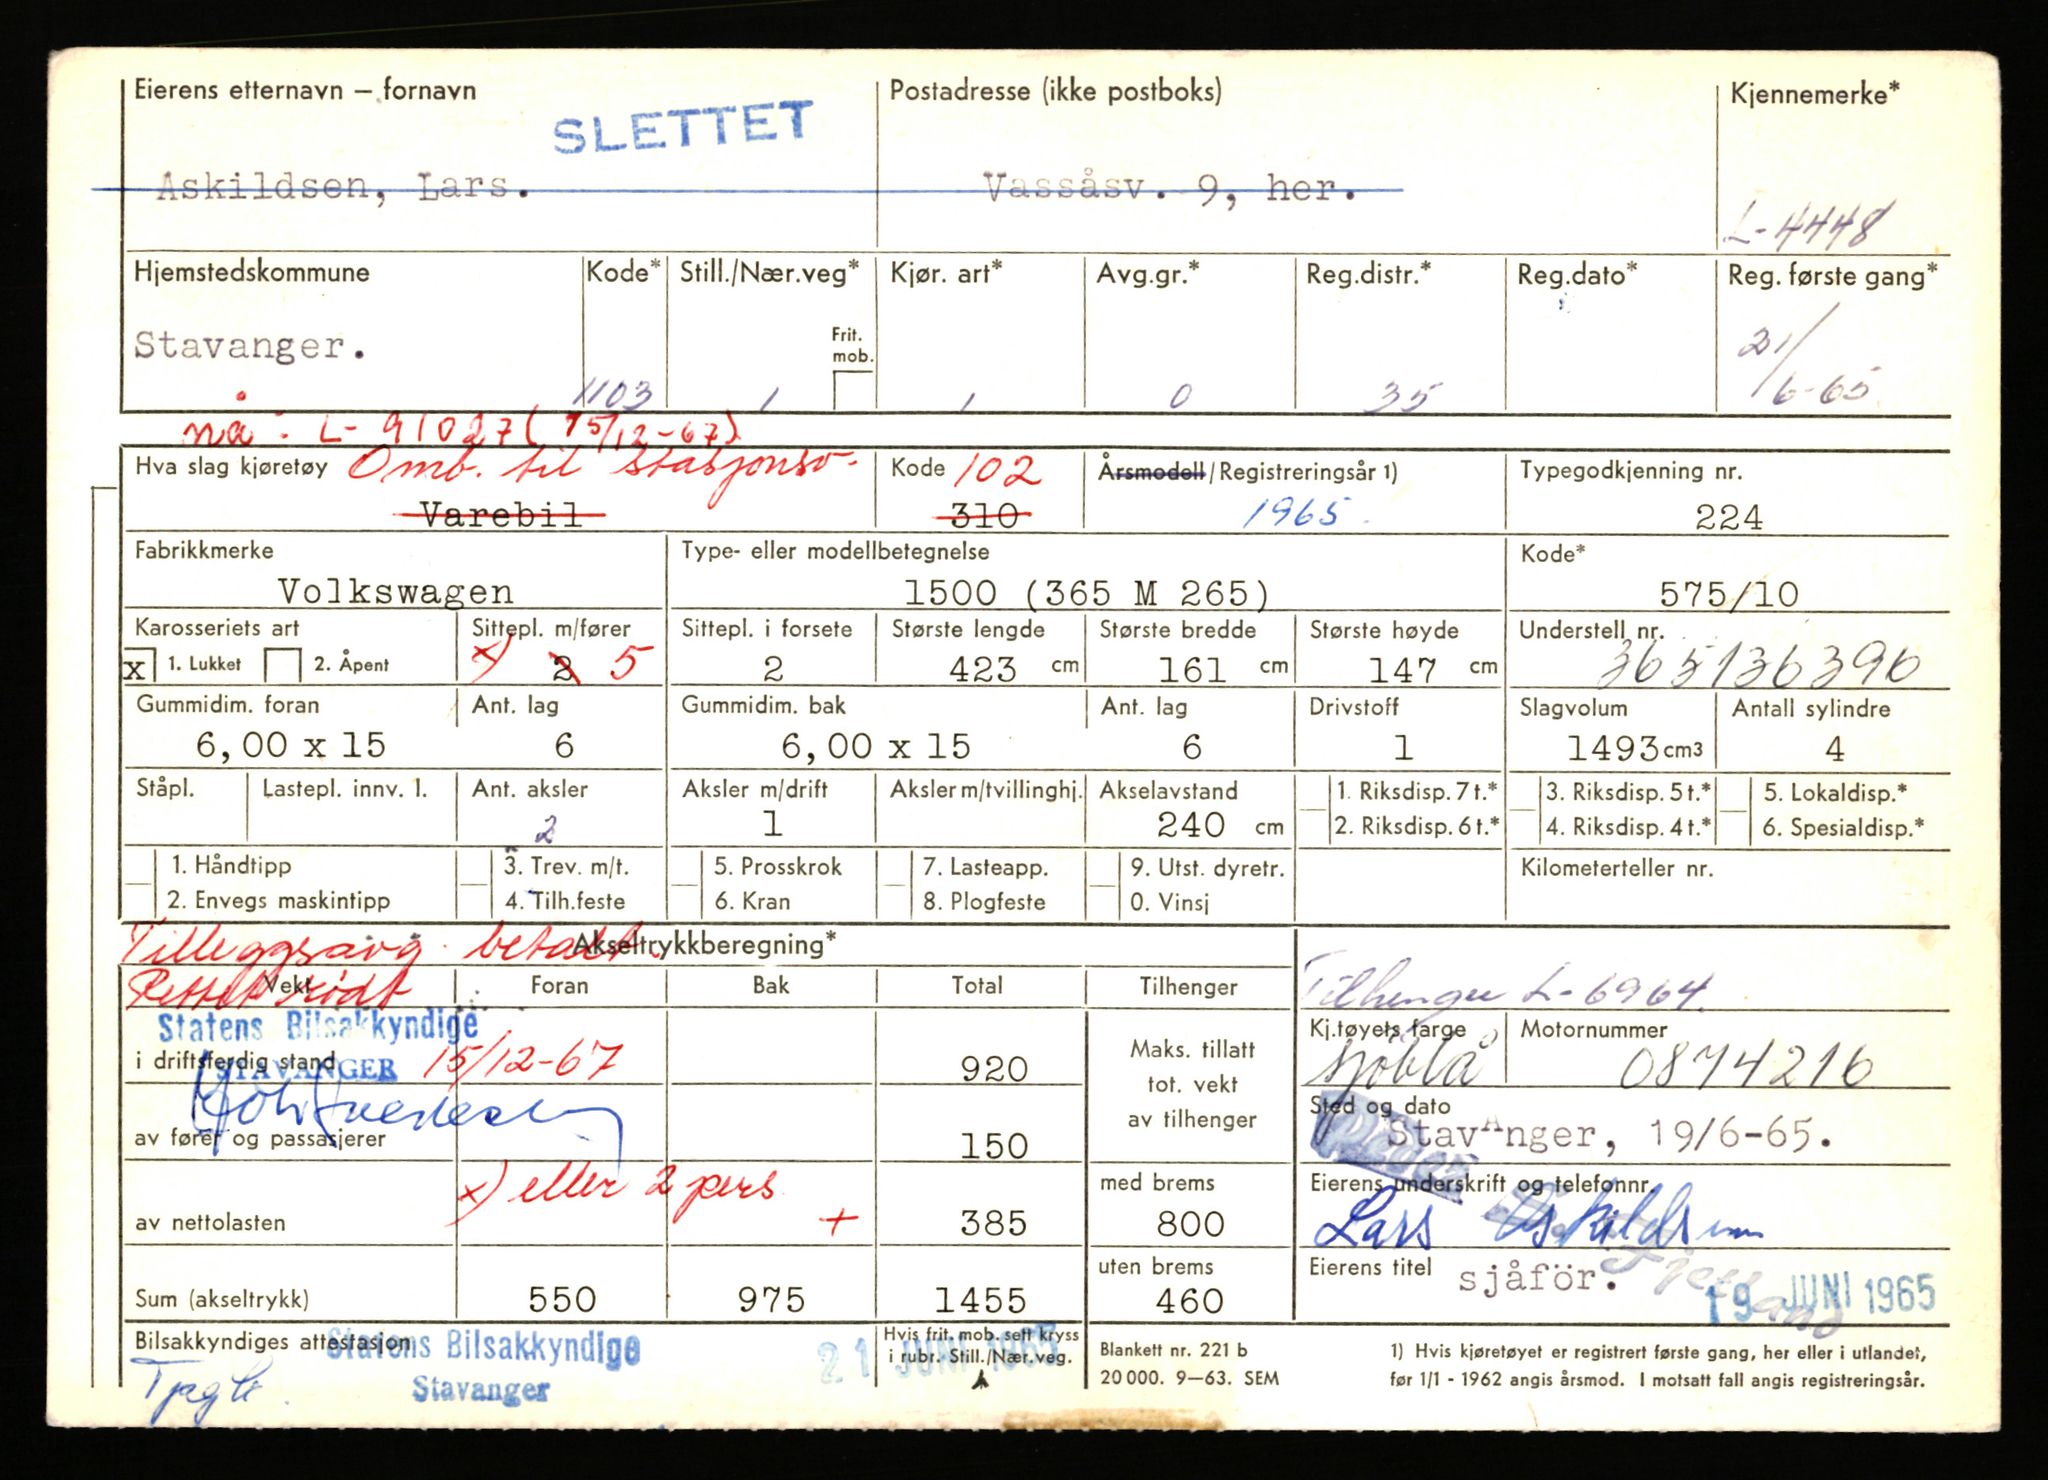 Eierens etternavn – fornavn
Postadresse (ikke postboks)
Kjennemerke*
SLETTET
Askildsen, Lars.
Vassåsv. 9, her.
L-4448
Hjemstedskommune
Kode*
Still./Nær.veg*
Kjør. art*
Avg.gr.*
Reg.distr.*
Reg.dato*
Reg. første gang*
Stavanger.
Frit. mob.
1103
1
1
0
35
21/6-65
nå: L-91027 (15/12-67)
Hva slag kjøretøy
Omb. til stasjonsv.
Varebil
Kode
102
310
Årsmodell/Registreringsår 1)
1965
Typegodkjenning nr.
224
Fabrikkmerke
Volkswagen
Type- eller modellbetegnelse
1500 (365 M 265)
Kode*
575/10
Karosseriets art
x 1. Lukket 2. Åpent
Sittepl. m/fører
x) 2 5
Sittepl. i forsete
2
Største lengde
423 cm
Største bredde
161 cm
Største høyde
147 cm
Understell nr.
365136396
Gummidim. foran
6,00 x 15
Ant. lag
6
Gummidim. bak
6,00 x 15
Ant. lag
6
Drivstoff
1
Slagvolum
1493 cm3
Antall sylindre
4
Ståpl.
Lastepl. innv. l.
Ant. aksler
2
Aksler m/drift
1
Aksler m/tvillinghj.
Akselavstand
240 cm
1. Riksdisp. 7 t.*
2. Riksdisp. 6 t.*
3. Riksdisp. 5 t.*
4. Riksdisp. 4 t.*
5. Lokaldisp.*
6. Spesialdisp.*
1. Håndtipp
2. Envegs maskintipp
3. Trev. m/t.
4. Tilh.feste
5. Prosskrok
6. Kran
7. Lasteapp.
8. Plogfeste
9. Utst. dyretr.
0. Vinsj
Kilometerteller nr.
Tilleggsavg. betalt.
Akseltrykkberegning*
Rettet rødt
Vekt
Foran
Bak
Total
Tilhenger
Tilhenger L-6964
Statens Bilsakkyndige
STAVANGER
15/12-67
i driftsferdig stand
920
Maks. tillatt
tot. vekt
av tilhenger
Kj.tøyets farge
sjöblå
Motornummer
0874216
av fører og passasjerer
150
Sted og dato
StavAnger, 19/6-65.
x) eller 2 pers
+
av nettolasten
385
med brems
800
Eierens underskrift og telefonnr.
Lars Askildsen
Sum (akseltrykk)
550
975
1455
uten brems
460
Eierens titel
sjåför.
19 JUNI 1965
Bilsakkyndiges attestasjon
Statens Bilsakkyndige
Stavanger
21 JUNI 1965
Hvis frit. mob. sett kryss
i rubr. Still./Nær.veg.
Blankett nr. 221 b
20 000. 9–63. SEM
1) Hvis kjøretøyet er registrert første gang, her eller i utlandet,
før 1/1 - 1962 angis årsmod. I motsatt fall angis registreringsår.